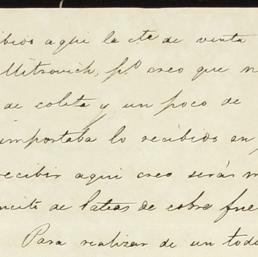 cibido aqui la cta de venta
Mitrovich, po creo que n
de coleta y un poco de
importaba lo recibido en p
recibir aqui creo serás m
de latas de cobre fue
Para realizar de un todo